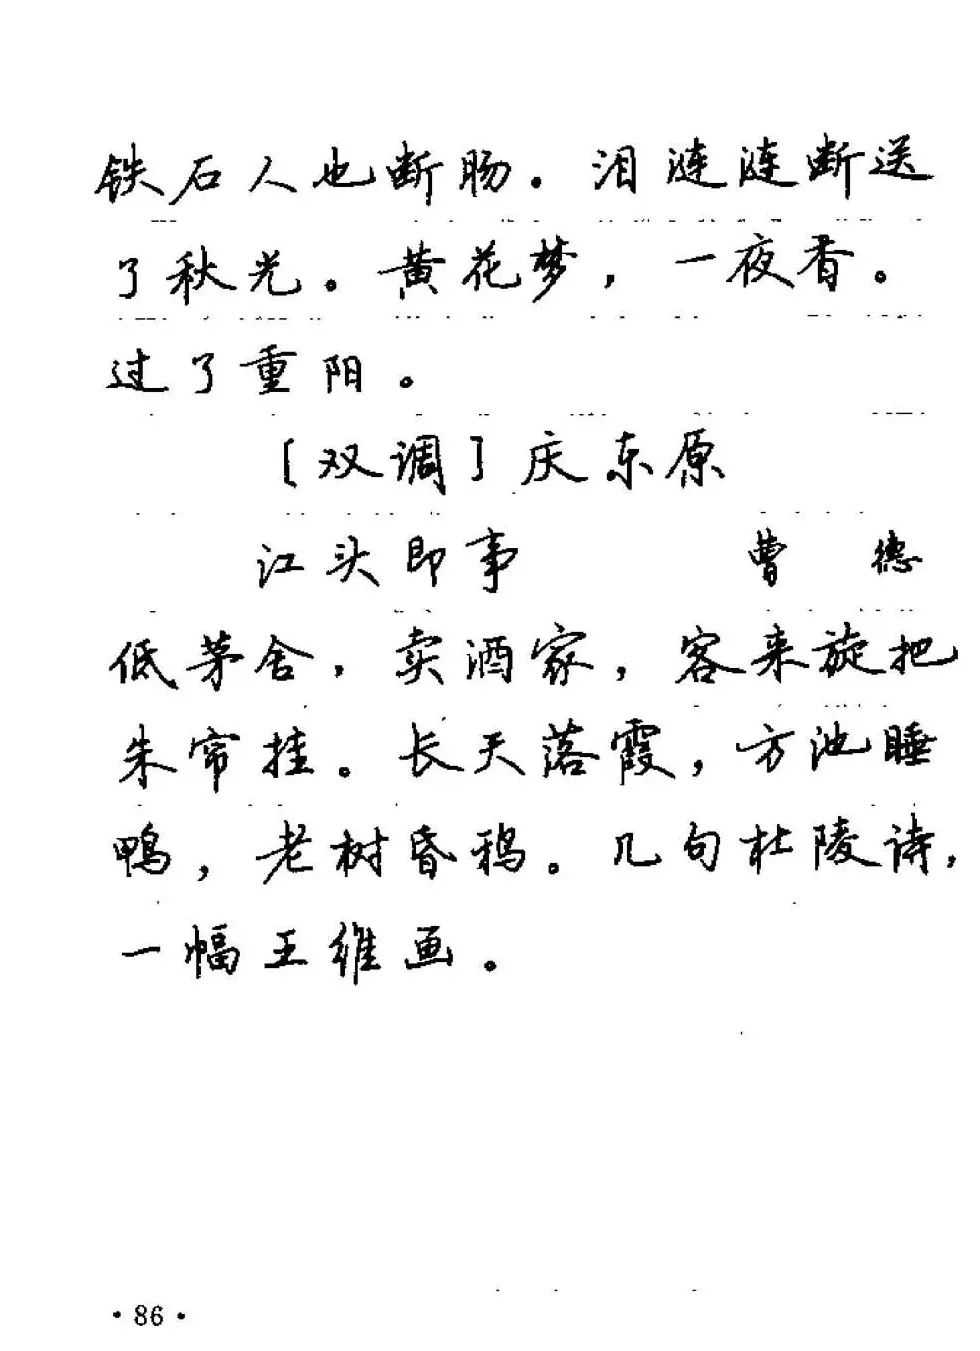 铁石人也断肠。泪涟涟断送
了秋光。黄花梦，一夜香。
过了重阳。
［双调］庆东原
江头即事 曹 德
低茅舍，卖酒家，客来旋把
朱帘挂。长天落霞，方池睡
鸭，老树昏鸦。几句杜陵诗，
一幅王维画。
·86·